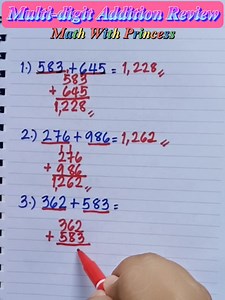 Multi-digit Addition Review
Math With Princess
1.) 583 + 645 = 1,228
583
+ 645
1,228
2.) 276 + 986 = 1,262
11
276
+ 986
1,262
3.) 362 + 583 =
362
+ 583